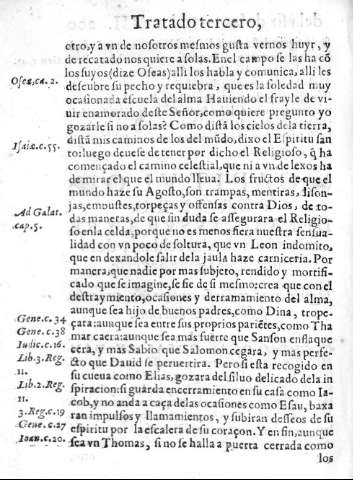 Tratado tercero,
otro,y a vn de nosotros mesmos gusta vernos huyr, y
de recatado nos quiere a solas. En el campo se las ha cõ
los suyos (dize Oseas) alli los habla y comunica, alli les
Osea, ca. 2.
descubre su pecho y requiebra, que es la soledad muy
ocasionada escuela del alma Hauiendo el frayle de vi-
uir enamorado deste Señor, como quiere pregunto yo
gozarle si no a solas? Como distã los cielos dela tierra,
distã mis caminos de los del mũdo, dixo el Espiritu san
Isaiæ. c. 55.
to: luego deuese de tener por dicho el Religioso, q̃ ha
començado el camino celestial, que ni a vn de lexos ha
de mirar el que el mundo lleua. Los fructos de que el
mundo haze su Agosto, son trampas, mentiras, lison-
jas, embustes, torpezas y offensas contra Dios, de to-
Ad Galat.
das maneras, de que sin duda se assegurara el Religio-
cap. 5.
so en la celda, porque no es menos fiera nuestra sensua-
lidad con vn poco de soltura, que vn Leon indomito,
que en dexandole salir dela jaula haze carniceria. Por
manera, que nadie por mas subjeto, rendido y mortifi-
cado que se imagine, se fie de si mesmo: crea que con el
destraymiento, ocasiones y derramamiento del alma,
aunque sea hijo de buenos padres, como Dina, trope-
Gene. c. 34
çara: aunque sea entre sus proprios pariẽtes, como Tha
Gene. c. 38
mar caera: aunque sea mas fuerte que Sanson enflaque
Iudic. c. 16.
cera, y mas Sabio que Salomon cegara, y mas perfe-
Lib. 3. Reg.
cto que Dauid se peruertira. Pero si esta recogido en
11.
su cueua como Elias, gozara del siluo delicado dela in
Lib. 2. Reg.
spiracion: si guarda encerramiento en su casa como Ia-
11.
cob, y no anda a caça de las ocasiones como Esau, baxa
3. Reg. c. 19
ran impulsos y llamamientos, y subiran desseos de su
Gene. c. 27
espiritu por la escalera de su coraçon. Y en fin, aunque
Ioan. c. 20.
sea vn Thomas, si no se halla a puerta cerrada como
los